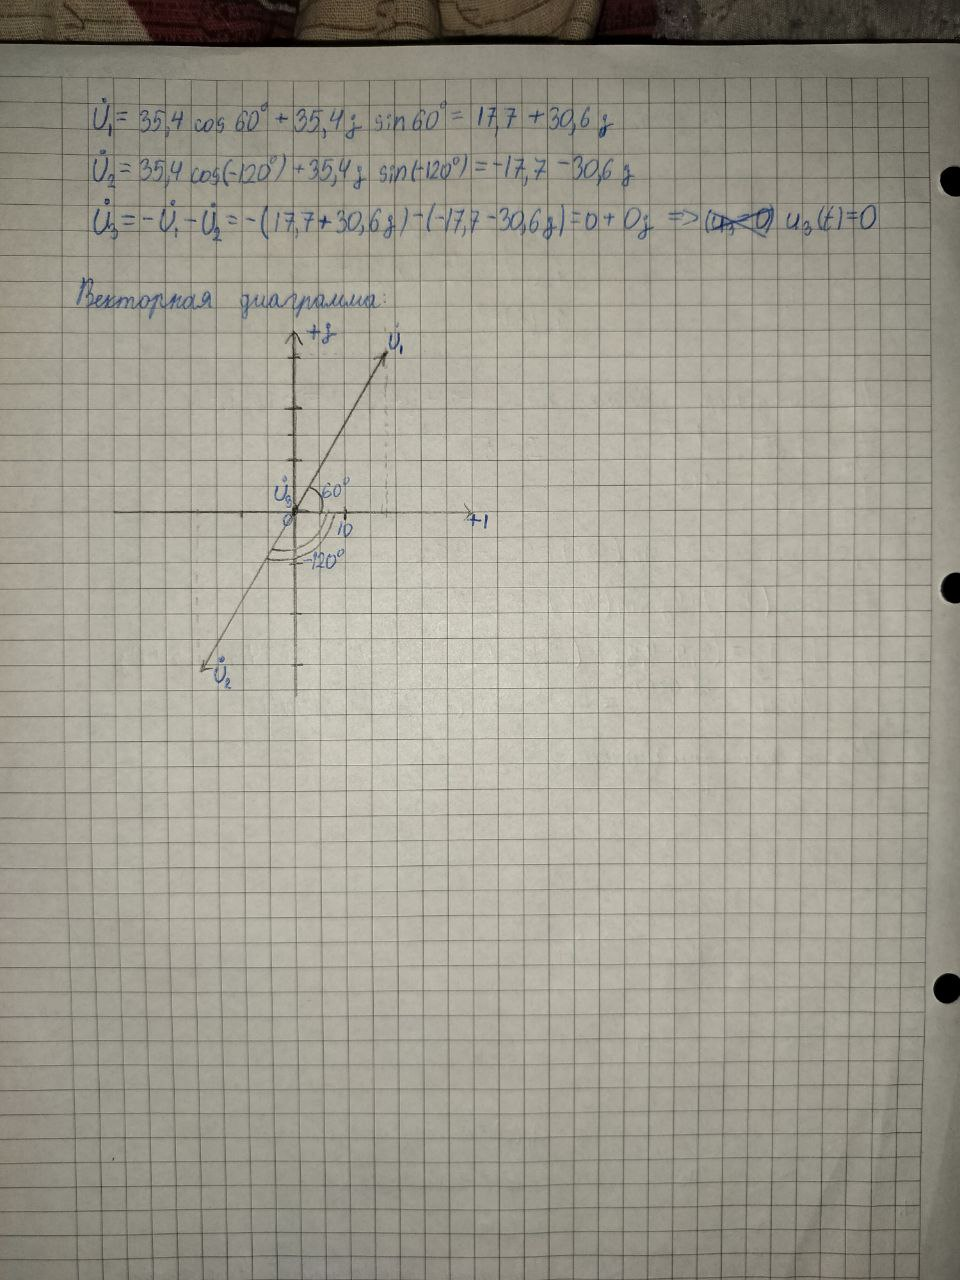 U̇₁ = 35,4 cos 60° + 35,4j sin 60° = 17,7 + 30,6j
U̇₂ = 35,4 cos(-120°) + 35,4j sin(-120°) = -17,7 - 30,6j
U̇₃ = -U̇₁ - U̇₂ = -(17,7 + 30,6j) - (-17,7 - 30,6j) = 0 + 0j => u₃(t) = 0
Векторная диаграмма:
+j
U̇₁
U̇₃
60°
0
10
+1
-120°
U̇₂